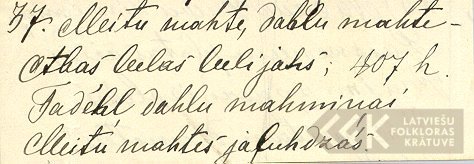 37. Meitu mahte, dahlu mahte –
Abas leelas leelijahs; 407 h.
Tadēhl dahlu mahminai
Meitu mahtes jaluhdzās
LATVIEŠU
FOLKLORAS
KRĀTUVE